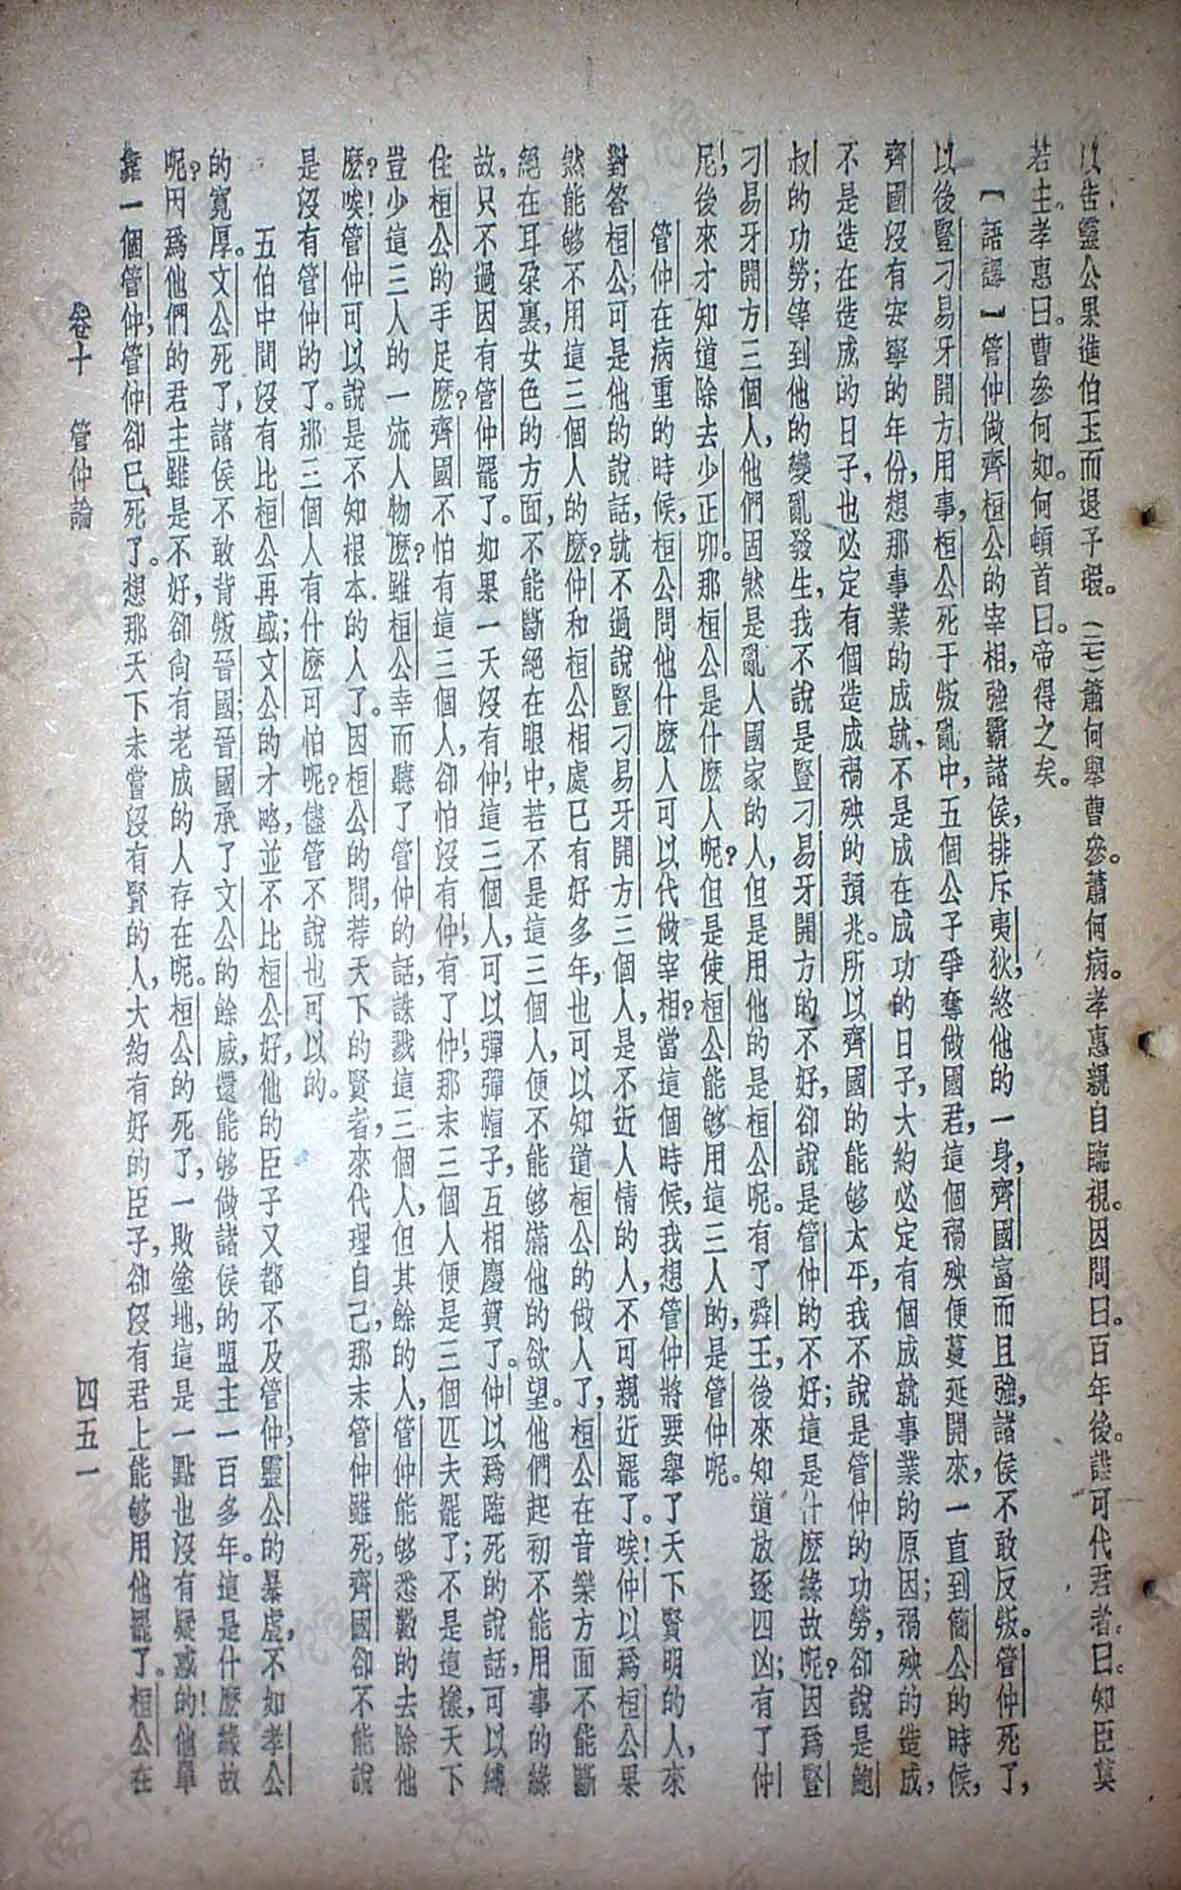 以告靈公果進伯玉而退子瑕。(二七)蕭何舉曹參。蕭何病。孝惠親自臨視。因問曰。百年後。誰可代君者。曰。知臣莫
若主。孝惠曰。曹參何如。何頓首曰。帝得之矣。
【語譯】管仲做齊桓公的宰相,強霸諸侯,排斥夷狄,終他的一身,齊國富而且強,諸侯不敢反叛。管仲死了,
以後豎刁易牙開方用事,桓公死于叛亂中,五個公子爭奪做國君,這個禍殃便蔓延開來,一直到簡公的時候,
齊國沒有安寧的年份,想那事業的成就,不是成在成功的日子,大約必定有個成就事業的原因;禍殃的造成,
不是造在造成的日子,也必定有個造成禍殃的預兆。所以齊國的能够太平,我不說是管仲的功勞,卻說是鮑
叔的功勞;等到他的變亂發生,我不說是豎刁易牙開方的不好,卻說是管仲的不好;這是什麽緣故呢?因爲豎
刁易牙開方三個人,他們固然是亂人國家的人,但是用他的是桓公呢。有了舜王,後來知道放逐四凶;有了仲
尼,後來才知道除去少正卯。那桓公是什麽人呢?但是使桓公能够用這三人的,是管仲呢。
管仲在病重的時候,桓公問他什麽人可以代做宰相?當這個時候,我想管仲將要舉了天下賢明的人,來
對答桓公;可是他的說話,就不過說豎刁易牙開方三個人,是不近人情的人,不可親近罷了。唉!仲以爲桓公果
然能够不用這三個人的麽?仲和桓公相處已有好多年,也可以知道桓公的做人了,桓公在音樂方面不能斷
絕在耳朶裏,女色的方面,不能斷絕在眼中,若不是這三個人,便不能够滿他的欲望。他們起初不能用事的緣
故,只不過因有管仲罷了。如果一天沒有仲,這三個人,可以彈彈帽子,互相慶賀了。仲以爲臨死的說話,可以縛
住桓公的手足麽?齊國不怕有這三個人,卻怕沒有仲,有了仲,那末三個人便是三個匹夫罷了;不是這樣,天下
豈少這三人的一流人物麽?雖桓公幸而聽了管仲的話,誅戮這三個人,但其餘的人,管仲能够悉數的去除他
麽?唉!管仲可以說是不知根本的人了。因桓公的問,荐天下的賢者,來代理自己,那末管仲雖死,齊國卻不能說
是沒有管仲的了。那三個人有什麽可怕呢?儘管不說也可以的。
五伯中間沒有比桓公再盛;文公的才略,並不比桓公好,他的臣子又都不及管仲,靈公的暴虐,不如孝公
的寬厚。文公死了,諸侯不敢背叛晉國;晉國承了文公的餘威,還能够做諸侯的盟主一百多年。這是什麽緣故
呢?因爲他們的君主雖是不好,卻尚有老成的人存在呢。桓公的死了,一敗塗地,這是一點也沒有疑惑的!他單
靠一個管仲,管仲卻已死了。想那天下未嘗沒有賢的人,大約有好的臣子,卻沒有君上能够用他罷了。桓公在
卷十 管仲論 四五一